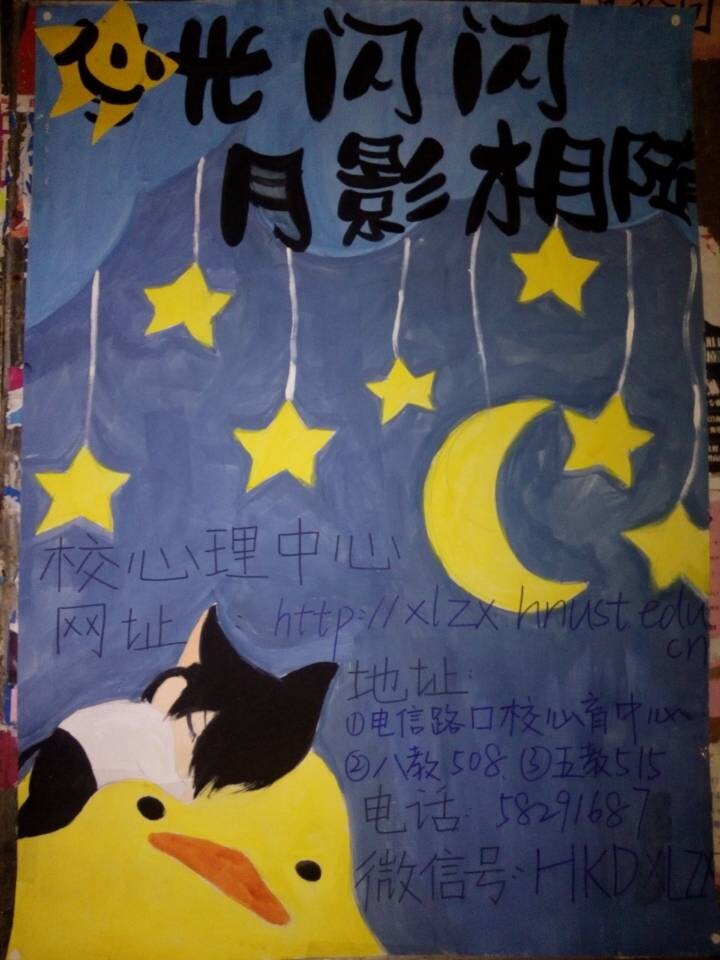 光闪闪
月影相随
校心理中心
网址: http://xlzx.hnust.edu.
cn
地址:
①电信路口校心育中心
②八教508 ③五教515
电话: 58291687
微信号: HKDXLZX